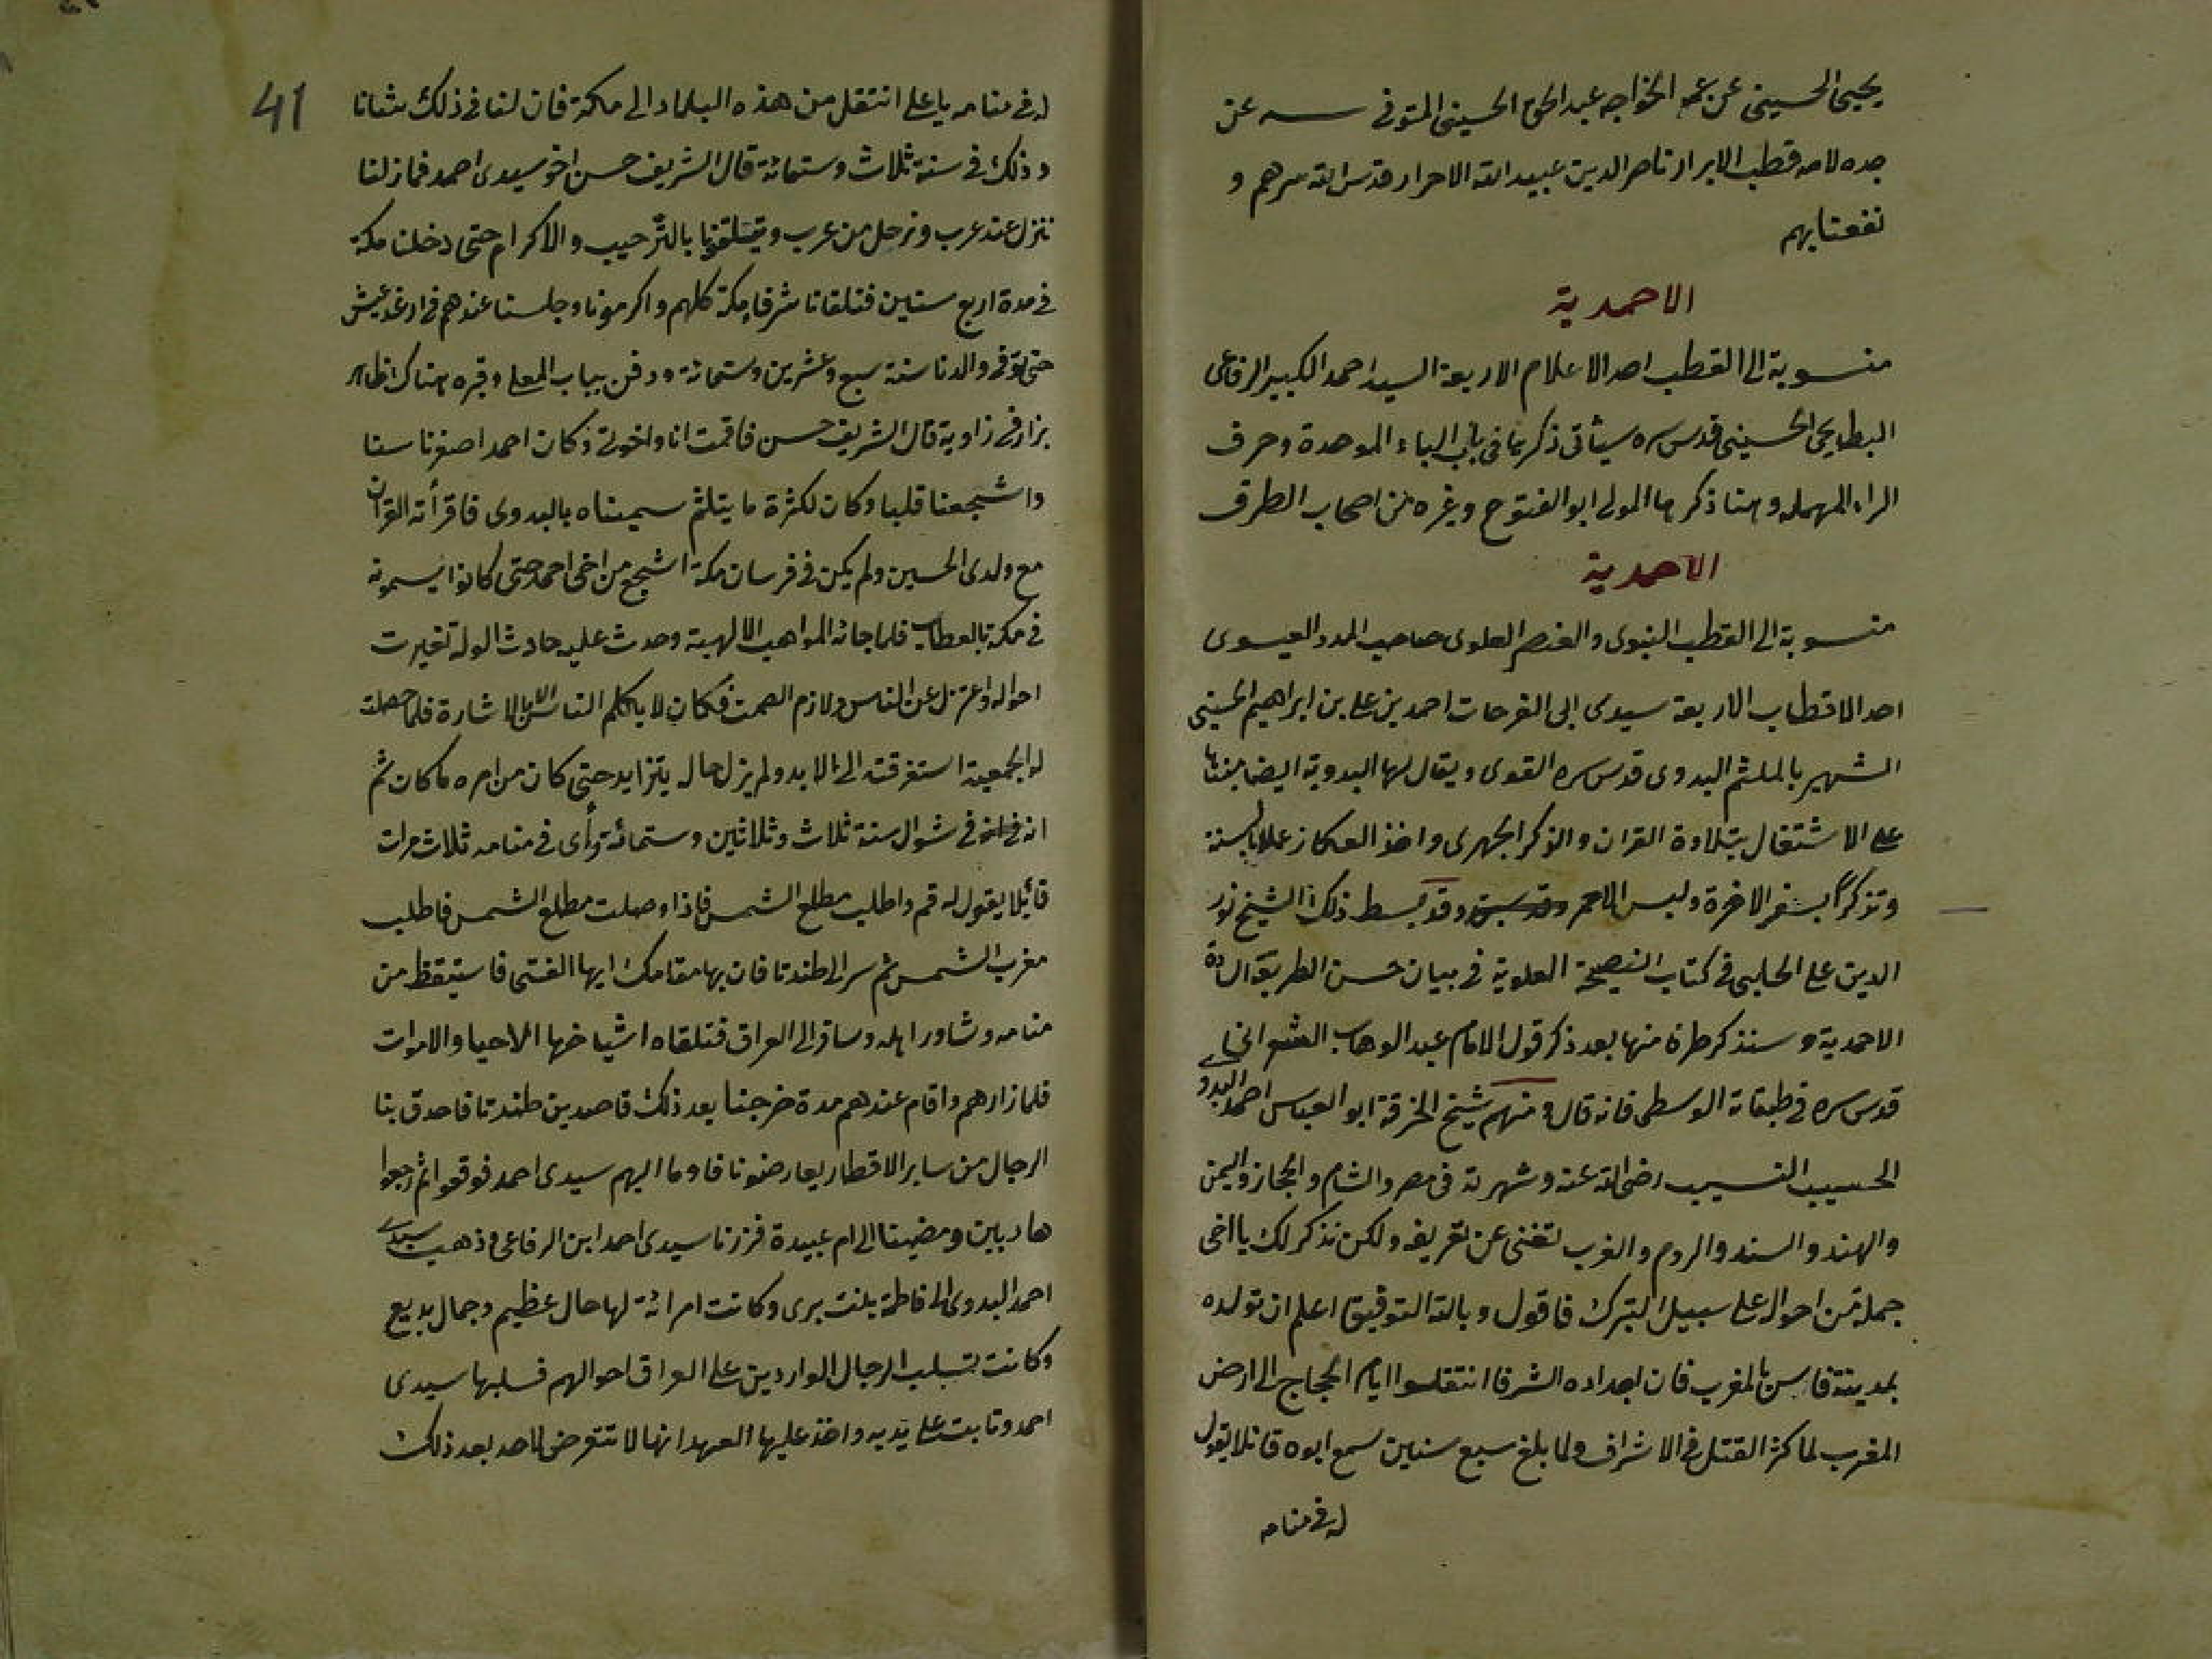 يحيى الحسيني عن عمه الخواجه عبد الحق الحسيني المتوفى سـه عن
جده لامه قطب الابرار ناصر الدين عبيد الله الاحرار قدس الله سرهم و
نفعنا بهم
الاحمدية
منسوبة الى القطب احد الاعلام الاربعة السيد احمد الكبير الرفاعى
البطايحى الحسينى قدس سره سيأتى ذكرها فى باب الباء الموحدة وحرف
الراء المهمله وهنا ذكرها المولى ابو الفتوح وغيره من اصحاب الطرق
الاحمدية
منسوبة الى القطب النبوى والغصن العلوى صاحب المدد العيسوى
احد الاقطاب الاربعة سيدى ابى الفرحات احمد بن على بن ابراهيم الحسينى
الشهير بالملثم البدوى قدس سره القوى ويقال لها البدوية ايضا مبناها
على الاشتغال بتلاوة القران والذكر الجهرى واخذ العكاز عملا بالسنة
وتذكرا بسفر الاخرة ولبس الاحمر وقد بسط ذلك الشيخ نور
الدين على الحلبى فى كتاب النصيحة العلوية فى بيان حسن الطريقة السادة
الاحمدية وسنذكر طرفا منها بعد ذكر قول الامام عبد الوهاب الشعرانى
قدس سره فى طبقاته الوسطى فانه قال ومنهم شيخ الخرقة ابو العباس احمد البدوى
الحسيب النسيب رضى الله عنه وشهرته فى مصر والشام والحجاز واليمن
والهند والسند والروم والغرب تغنى عن تعريفه ولكن نذكر لك يا اخى
جملة من احواله على سبيل التبرك فاقول وبالله التوفيق اعلم ان تولده
بمدينة فاس بالمغرب فان اجداده الشرفا انتقلوا ايام الحجاج الى ارض
المغرب لما كثر القتل فى الاشراف ولما بلغ سبع سنين سمع ابوه قائلا يقول
له فى منامه
41
له فى منامه يا على انتقل من هذه البلاد الى مكة فان لنا فى ذلك شانا
وذلك فى سنة ثلاث وستمائة قال الشريف حسن اخو سيدى احمد فما زلنا
ننزل عند عرب ونرحل من عرب ويتلقونا بالترحيب والاكرام حتى دخلنا مكة
فى مدة اربع سنين فتلقانا شرفاء مكة كلهم واكرمونا وجلسنا عندهم فى ارغد عيش
حتى توفى والدنا سنة سبع وعشرين وستمائة ودفن بباب المعلى وقبره هناك ظاهر
يزار فى زاوية قال الشريف حسن فاقمت انا واخوتى وكان احمد اصغرنا سنا
واشجعنا قلبا وكان لكثرة ما يتلثم سميناه بالبدوى فاقرأته القران
مع ولدى الحسين ولم يكن فى فرسان مكة اشجع من اخى احمد حتى كانوا يسمونه
فى مكة بالعطاب فلما جائه المواهب الالهية وحدث عليه حادث الوله تغيرت
احواله واعتزل عن الناس ولازم الصمت فكان لا يكلم الناس الا بالاشارة فلما حصلت
له الجمعية استغرقته الى الابد ولم يزل حاله يتزايد حتى كان من امره ما كان ثم
انه فى شوال سنة ثلاث وثلاثين وستمائة رأى فى منامه ثلاث مرات
قائلا يقول له قم واطلب مطلع الشمس فاذا وصلت مطلع الشمس فاطلب
مغرب الشمس ثم سر الى طندتا فان بها مقامك ايها الفتى فاستيقظ من
منامه وشاور اهله وسافر الى العراق فتلقاه اشياخها الاحيا والاموات
فلما زارهم واقام عندهم مدة خرجنا بعد ذلك قاصدين طندتا فاحدق بنا
الرجال من ساير الاقطار يعارضونا فاوما اليهم سيدى احمد فوقعوا ثم رجعوا
هاربين ومضينا الى ام عبيدة فزرنا سيدى احمد ابن الرفاعى وذهب سيدى
احمد البدوى الى فاطمة بنت برى وكانت امرائة لها حال عظيم وجمال بديع
وكانت تسلب الرجال الواردين على العراق احوالهم فسلبها سيدى
احمد وتابت على يديه واخذ عليها العهد انها لا تتعرض لاحد بعد ذلك